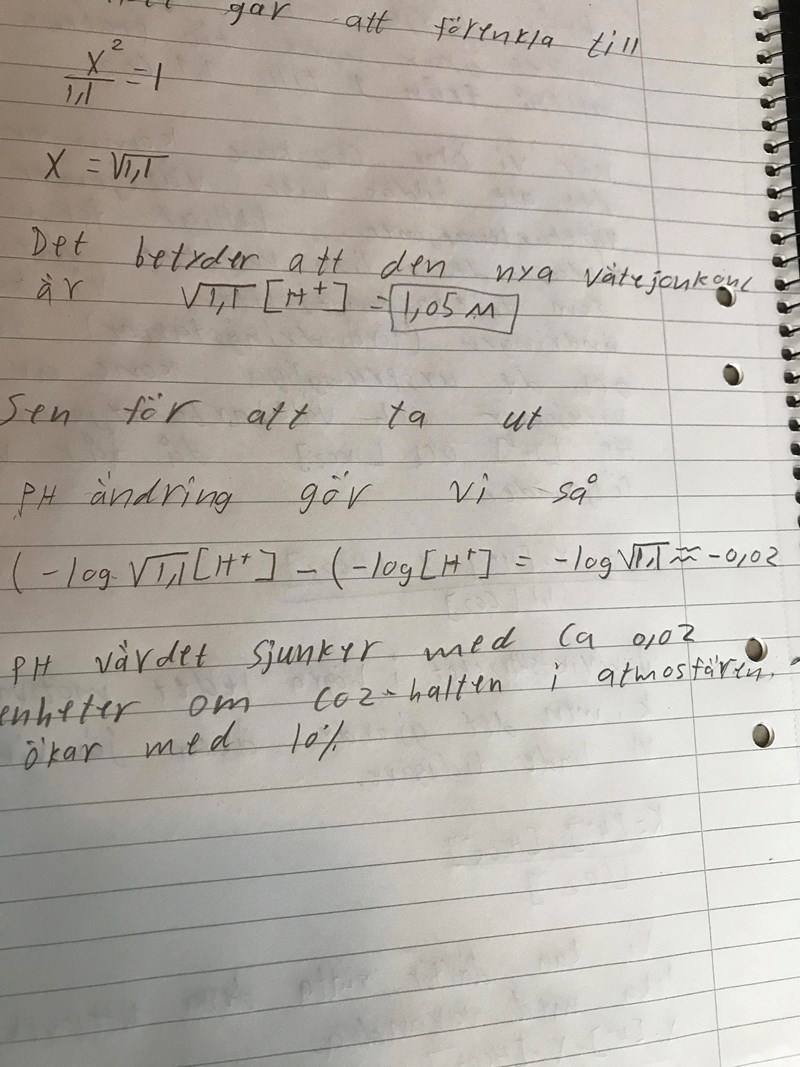 går att förenkla till
x²/1,1 = 1
x = √1,1
Det betyder att den nya vätejonkonc
är √1,1 [H⁺] = 1,05 M
Sen för att ta ut
PH ändring gör vi så
(-log √1,1 [H⁺] - (-log [H⁺] = -log √1,1 ≈ -0,02
PH värdet sjunker med ca 0,02
enheter om CO2-halten i atmosfären
ökar med 10%